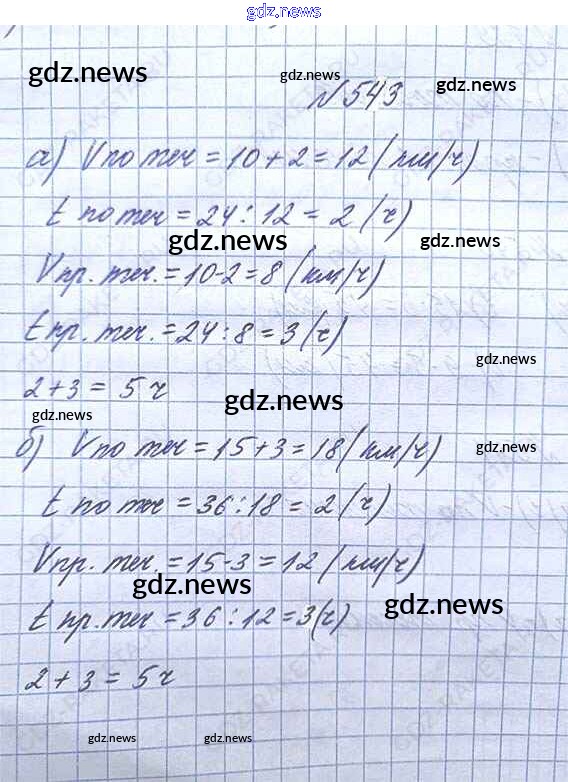 gdz.news
gdz.news gdz.news gdz.news
№ 543
а) Vпо теч = 10 + 2 = 12 (км/ч)
t по теч = 24 : 12 = 2 (ч)
gdz.news gdz.news
Vпр. теч. = 10 - 2 = 8 (км/ч)
tпр. теч. = 24 : 8 = 3 (ч)
gdz.news
2 + 3 = 5 ч
gdz.news gdz.news
б) Vпо теч = 15 + 3 = 18 (км/ч)
gdz.news
t по теч = 36 : 18 = 2 (ч)
Vпр. теч. = 15 - 3 = 12 (км/ч)
gdz.news gdz.news
t пр. теч = 36 : 12 = 3 (ч)
2 + 3 = 5ч
gdz.news gdz.news